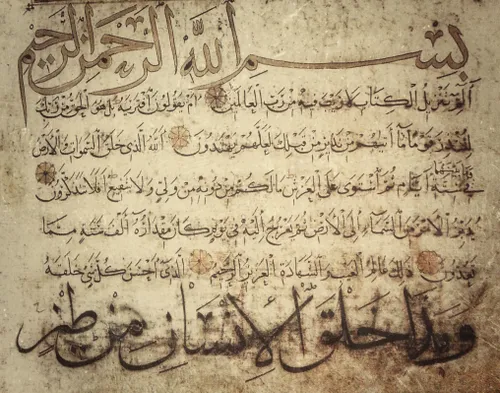 بسم الله الرحمن الرحيم
الم تنزيل الكتاب لا ريب فيه من رب العالمين ام يقولون افتريه بل هو الحق من ربك
لتنذر قوما ما اتيهم من نذير من قبلك لعلهم يهتدون الله الذي خلق السموات والارض
وما بينهما
في ستة ايام ثم استوى على العرش ما لكم من دونه من ولي ولا شفيع افلا تتذكرون
يدبر الامر من السماء الى الارض ثم يعرج اليه في يوم كان مقداره الف سنة مما
تعدون ذلك عالم الغيب والشهادة العزيز الرحيم الذي احسن كل شيء خلقه
وبدا خلق الانسان من طين